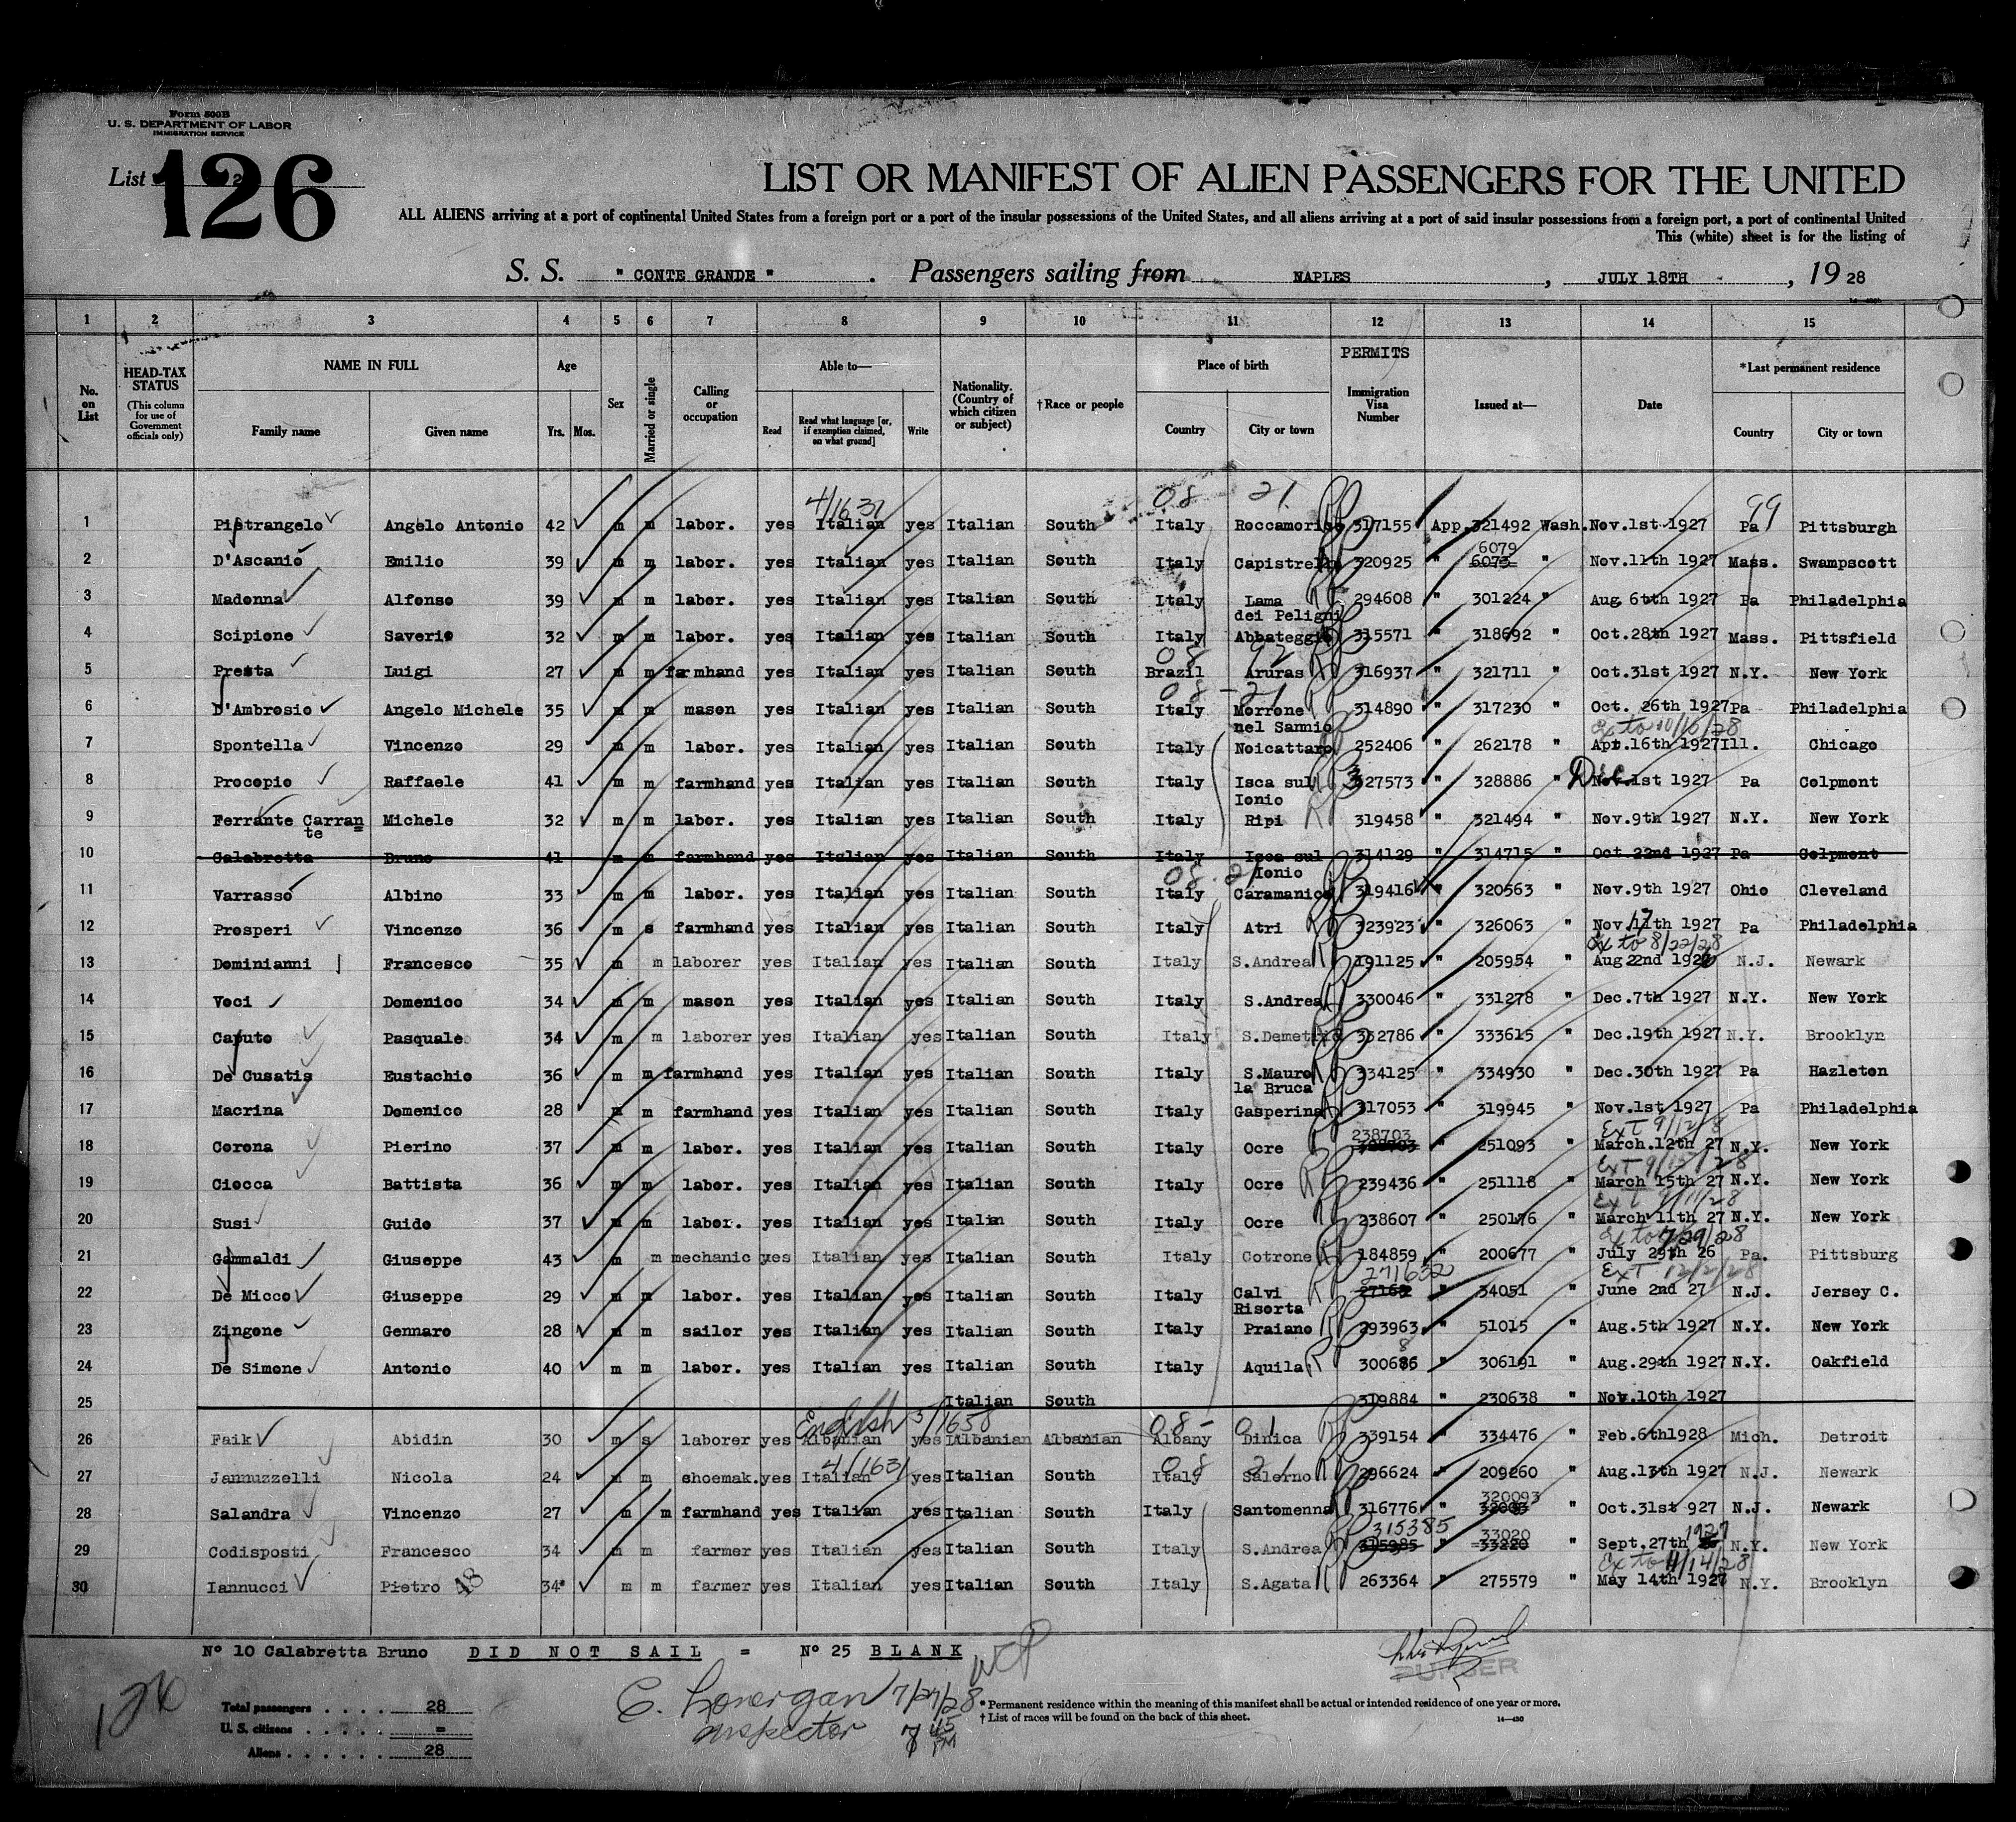 Form 500B
U. S. DEPARTMENT OF LABOR
IMMIGRATION SERVICE
List 126
LIST OR MANIFEST OF ALIEN PASSENGERS FOR THE UNITED
ALL ALIENS arriving at a port of continental United States from a foreign port or a port of the insular possessions of the United States, and all aliens arriving at a port of said insular possessions from a foreign port, a port of continental United
This (white) sheet is for the listing of
S. S. " CONTE GRANDE " . Passengers sailing from NAPLES , JULY 18TH , 19 28
1 2 3 4 5 6 7 8 9 10 11 12 13 14 15
No. on List HEAD-TAX STATUS (This column for use of Government officials only) NAME IN FULL Age Sex Married or single Calling or occupation Able to— Nationality. (Country of which citizen or subject) †Race or people Place of birth PERMITS Immigration Visa Number Issued at— Date *Last permanent residence
Family name Given name Yrs. Mos. Read Read what language [or, if exemption claimed, on what ground] Write Country City or town Country City or town
4/1631 08 21 99
1 Pietrangelo Angelo Antonio 42 m m labor. yes Italian yes Italian South Italy Roccamorice 317155 App. 321492 Wash. Nov.1st 1927 Pa Pittsburgh
6079
2 D'Ascanio Emilio 39 m m labor. yes Italian yes Italian South Italy Capistrello 320925 " 6073 " Nov.11th 1927 Mass. Swampscott
3 Madonna Alfonso 39 m m labor. yes Italian yes Italian South Italy Lama 294608 " 301224 " Aug. 6th 1927 Pa Philadelphia
dei Peligni
4 Scipione Saverio 32 m m labor. yes Italian yes Italian South Italy Abbateggio 315571 " 318692 " Oct.28th 1927 Mass. Pittsfield
08 92
5 Presta Luigi 27 m m farmhand yes Italian yes Italian South Brazil Aruras 316937 " 321711 " Oct.31st 1927 N.Y. New York
08 - 21
6 D'Ambrosio Angelo Michele 35 m m mason yes Italian yes Italian South Italy Morrone 314890 " 317230 " Oct. 26th 1927 Pa Philadelphia
nel Sannio Ex to 10/16/28
7 Spontella Vincenzo 29 m m labor. yes Italian yes Italian South Italy Noicattaro 252406 " 262178 " Apr.16th 1927 Ill. Chicago
8 Procopio Raffaele 41 m m farmhand yes Italian yes Italian South Italy Isca sul 327573 " 328886 " Dec Nov.1st 1927 Pa Colpmont
Ionio
9 Ferrante Carran Michele 32 m m labor. yes Italian yes Italian South Italy Ripi 319458 " 321494 " Nov.9th 1927 N.Y. New York
te
10 Calabretta Bruno 41 m m farmhand yes Italian yes Italian South Italy Isca sul 314129 " 314715 " Oct.22nd 1927 Pa Colpmont
08. 21 Ionio
11 Varrasso Albino 33 m m labor. yes Italian yes Italian South Italy Caramanico 319416 " 320563 " Nov.9th 1927 Ohio Cleveland
12 Prosperi Vincenzo 36 m s farmhand yes Italian yes Italian South Italy Atri 323923 " 326063 " Nov.17th 1927 Pa Philadelphia
Ex to 8/22/28
13 Dominianni Francesco 35 m m laborer yes Italian yes Italian South Italy S.Andrea 191125 " 205954 " Aug 22nd 1926 N.J. Newark
14 Voci Domenico 34 m m mason yes Italian yes Italian South Italy S.Andrea 330046 " 331278 " Dec.7th 1927 N.Y. New York
15 Caputo Pasquale 34 m m laborer yes Italian yes Italian South Italy S.Demetrio 332786 " 333615 " Dec.19th 1927 N.Y. Brooklyn
16 De Cusatis Eustachio 36 m m farmhand yes Italian yes Italian South Italy S.Mauro 334125 " 334930 " Dec.30th 1927 Pa Hazleton
la Bruca
17 Macrina Domenico 28 m m farmhand yes Italian yes Italian South Italy Gasperina 317053 " 319945 " Nov.1st 1927 Pa Philadelphia
238703 Ext 9/12/8
18 Corona Pierino 37 m m labor. yes Italian yes Italian South Italy Ocre " 251093 " March.12th 27 N.Y. New York
Ext 9/15/28
19 Ciocca Battista 36 m m labor. yes Italian yes Italian South Italy Ocre 239436 " 251118 " March 15th 27 N.Y. New York
Ext 9/11/28
20 Susi Guido 37 m m labor. yes Italian yes Italian South Italy Ocre 238607 " 250176 " March 11th 27 N.Y. New York
Ex to 7/29/28
21 Gammaldi Giuseppe 43 m m mechanic yes Italian yes Italian South Italy Cotrone 184859 " 200677 " July 29th 26 Pa. Pittsburg
271632 Ext 12/2/28
22 De Micco Giuseppe 29 m m labor. yes Italian yes Italian South Italy Calvi " 34051 " June 2nd 27 N.J. Jersey C.
Risorta
23 Zingone Gennaro 28 m m sailor yes Italian yes Italian South Italy Praiano 293963 " 51015 " Aug.5th 1927 N.Y. New York
24 De Simone Antonio 40 m m labor. yes Italian yes Italian South Italy Aquila 300686 " 306191 " Aug.29th 1927 N.Y. Oakfield
25 Italian South 319884 " 230638 " Nov.10th 1927
English 3/1658 08- 01
26 Faik Abidin 30 m s laborer yes Albanian yes Albanian Albanian Albany Dinica 339154 " 334476 " Feb.6th1928 Mich. Detroit
4/1631 08 21
27 Jannuzzelli Nicola 24 m m shoemak. yes Italian yes Italian South Italy Salerno 296624 " 209260 " Aug.13th 1927 N.J. Newark
320093
28 Salandra Vincenzo 27 m m farmhand yes Italian yes Italian South Italy Santomenna 316776 " 32003 " Oct.31st 927 N.J. Newark
315385 33020 1927
29 Codisposti Francesco 34 m m farmer yes Italian yes Italian South Italy S.Andrea 315985 " 33220 " Sept.27th N.Y. New York
Ex to 11/14/28
30 Iannucci Pietro 48 34 m m farmer yes Italian yes Italian South Italy S.Agata 263364 " 275579 " May 14th 1927 N.Y. Brooklyn
Nº 10 Calabretta Bruno DID NOT SAIL = Nº 25 BLANK
PURSER
126
Total passengers . . . . 28
U. S. citizens . . . . . =
Aliens . . . . . . 28
E. Lonergan 7/27/28
Inspector 7 45 PM
* Permanent residence within the meaning of this manifest shall be actual or intended residence of one year or more.
† List of races will be found on the back of this sheet.
14—430